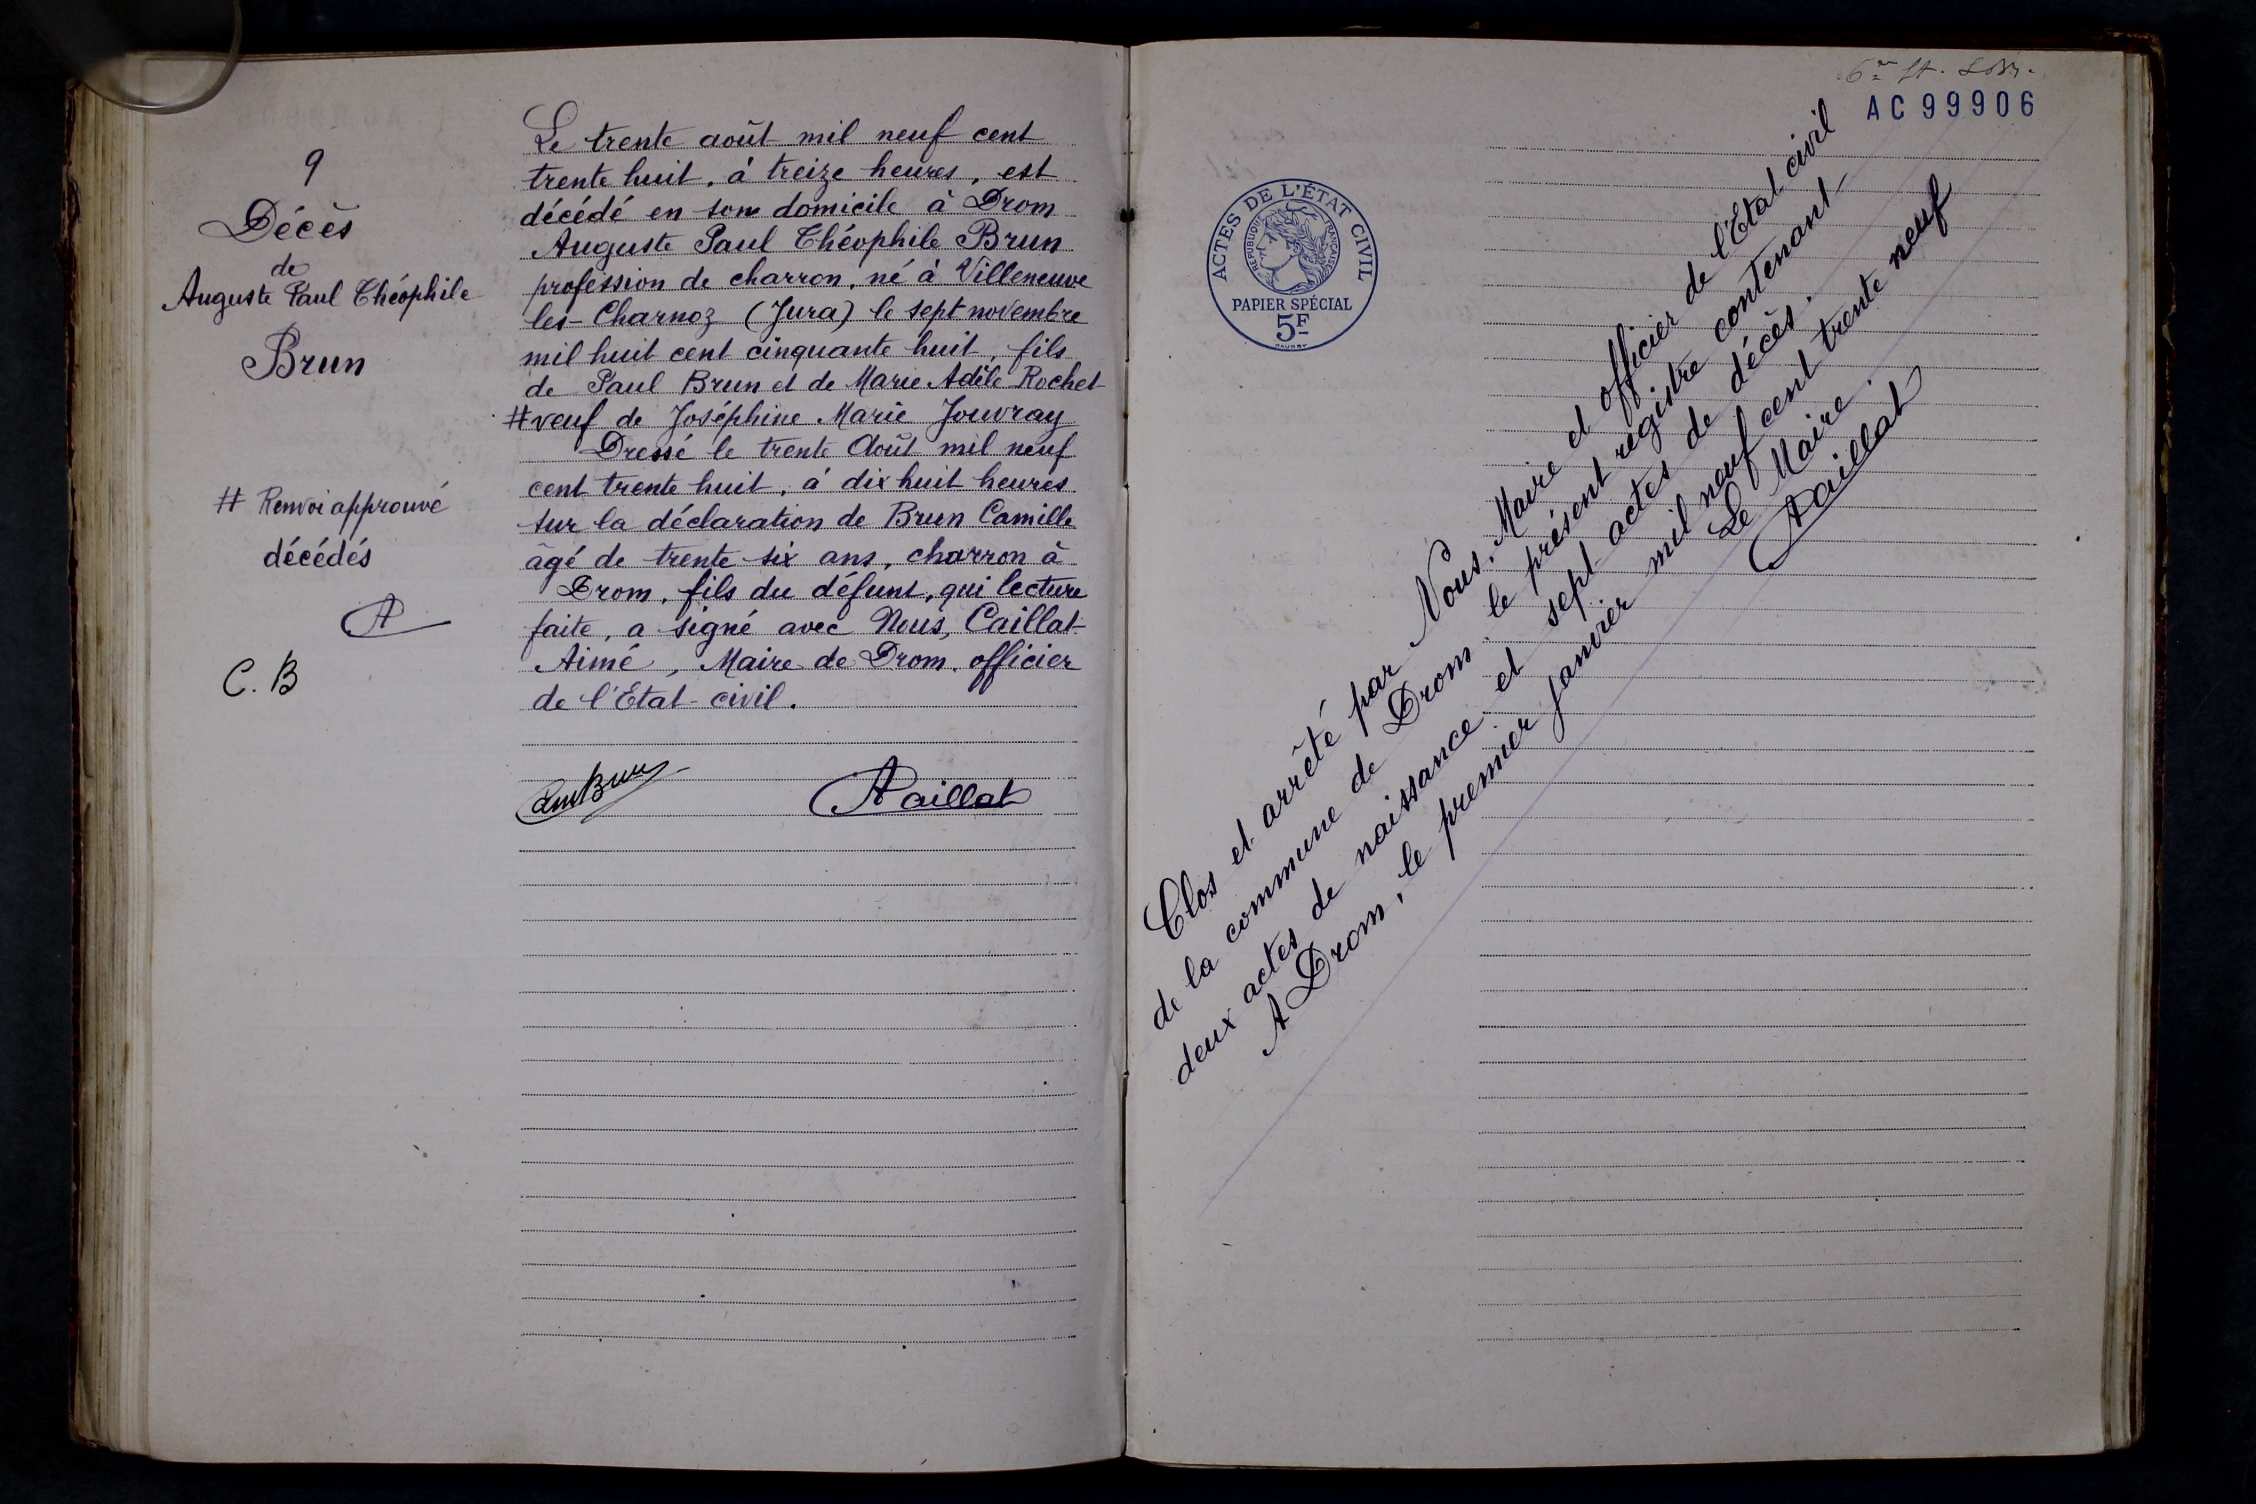 9
Décès
de
Auguste Paul Théophile
Brun
# Renvoi approuvé
décédés
C. B
Le trente août mil neuf cent
trente huit, à treize heures, est
décédé en son domicile à Drom
Auguste Paul Théophile Brun
profession de charron, né à Villeneuve
les-Charnoz (Jura) le sept novembre
mil huit cent cinquante huit, fils
de Paul Brun et de Marie Adèle Rochet
# veuf de Joséphine Marie Jouvray
Dressé le trente Août mil neuf
cent trente huit, à dix huit heures
sur la déclaration de Brun Camille
âgé de trente six ans, charron à
Drom, fils du défunt, qui lecture
faite, a signé avec Nous, Caillat
Aimé, Maire de Drom, officier
de l'Etat-civil.
Brun
ACaillat
AC 99906
ACTES DE L'ÉTAT CIVIL
RÉPUBLIQUE FRANÇAISE
PAPIER SPÉCIAL
5F
Clos et arrêté par Nous, Maire et officier de l'Etat civil
de la commune de Drom le présent registre contenant
deux actes de naissance et sept actes de décès.
A Drom, le premier janvier mil neuf cent trente neuf
Le Maire
ACaillat